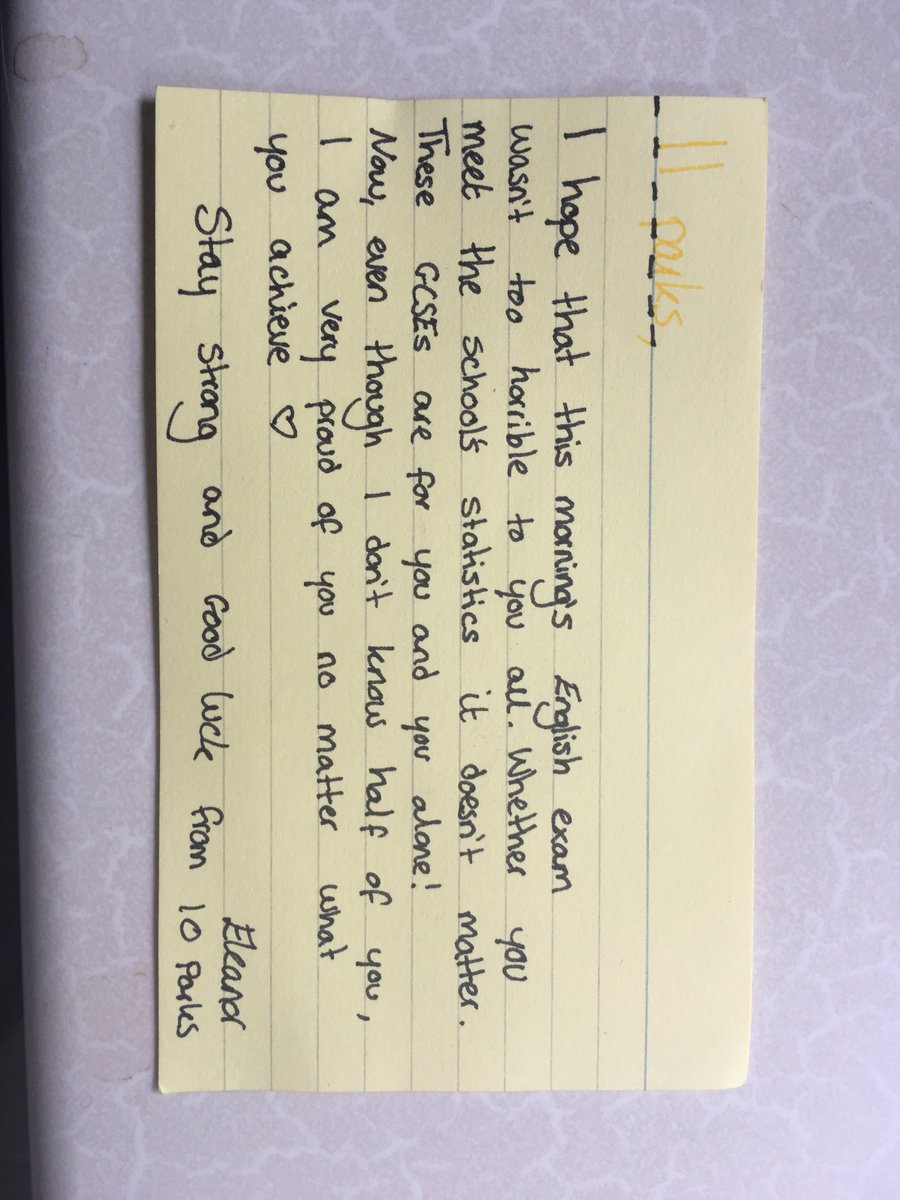 11 parks,
I hope that this morning's English exam
wasn't too horrible to you all. Whether you
meet the school's statistics it doesn't matter.
These GCSEs are for you and you alone!
Now, even though I don't know half of you,
I am very proud of you no matter what
you achieve ♡
Eleanor
Stay strong and Good luck from 10 Parks